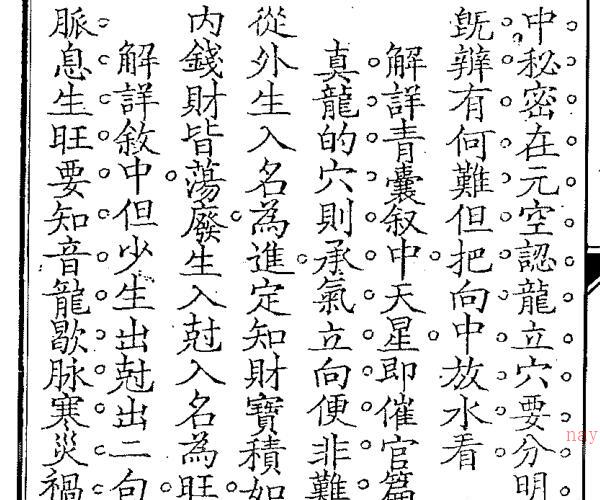 中秘密在元空認龍立穴要分明
旣辨有何難但把向中放水看
解詳青囊叙中天星即催官篇
真龍的穴則承氣立向便非難
從外生入名為進定知財寶積如
内錢財皆蕩廢生入尅入名為旺
解詳敘中但少生出尅出二句
脈息生旺要知音龍歇脉寒災禍
nay